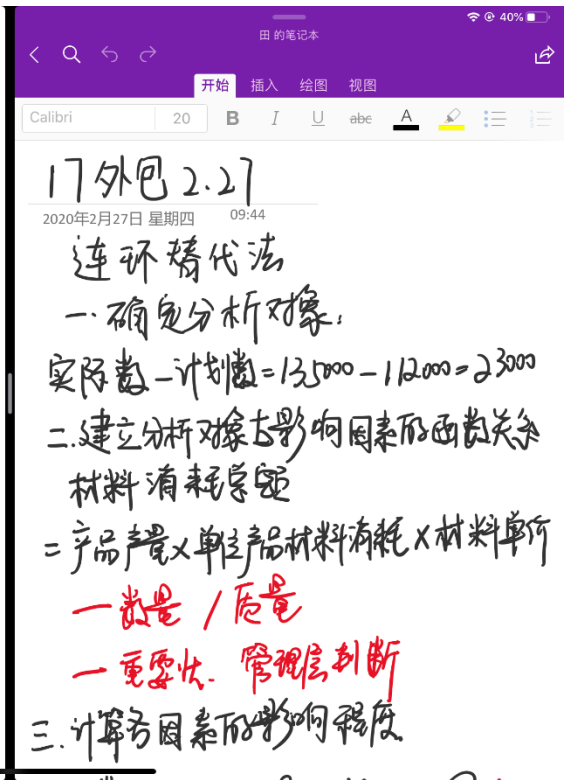 40%
田 的笔记本
开始 插入 绘图 视图
Calibri 20 B I U abc A
17外包2.27
2020年2月27日 星期四 09:44
连环替代法
一.确定分析对象:
实际数-计划数=135000-112000=23000
二.建立分析对象与影响因素的函数关系
材料消耗总额
=产品产量×单位产品材料消耗×材料单价
一数量/质量
一重要性.管理层判断
三.计算各因素的影响程度.